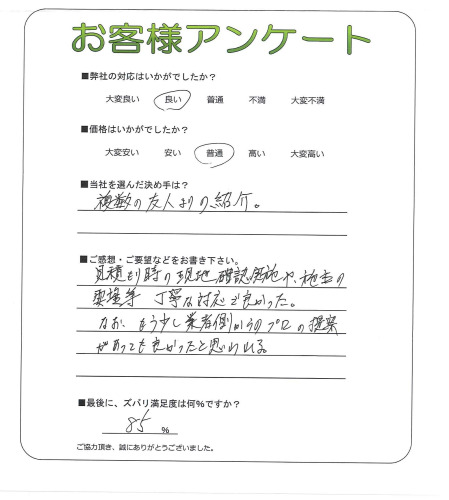 お客様アンケート
■弊社の対応はいかがでしたか?
大変良い 良い 普通 不満 大変不満
■価格はいかがでしたか?
大変安い 安い 普通 高い 大変高い
■当社を選んだ決め手は?
複数の友人よりの紹介。
■ご感想・ご要望などをお書き下さい。
見積り時の現地確認実施や、施主の
要望等 丁寧な対応で良かった。
なお、もう少し業者側からのプロの提案
があっても良かったと思われる。
■最後に、ズバリ満足度は何%ですか?
85 %
ご協力頂き、誠にありがとうございました。